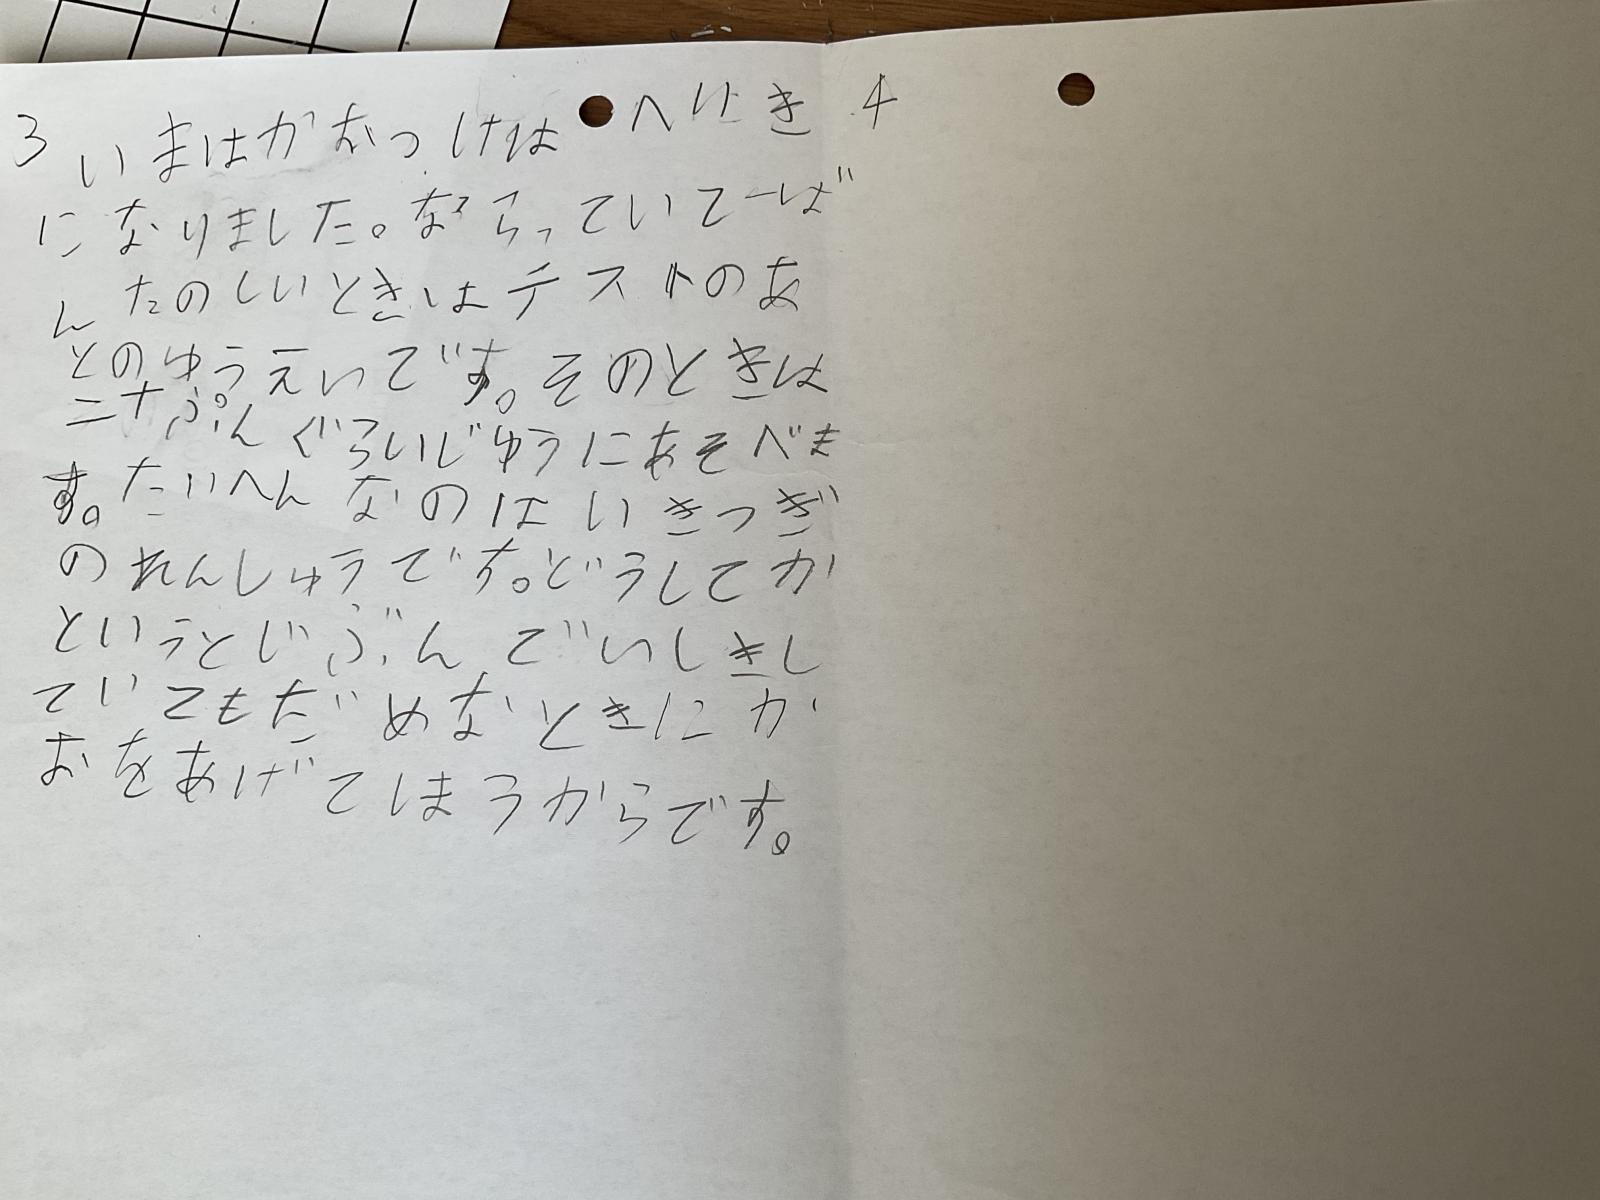 3 いまはかおつけはへいき 4
になりました。ならっていて一ば
んたのしいときはテストのあ
とのゆうえいです。そのときは
二十ぷんぐらいじゆうにあそべま
す。たいへんなのはいきつぎ
のれんしゅうです。どうしてか
というとじぶんでいしきし
ていてもだめなときにか
おをあげてしまうからです。